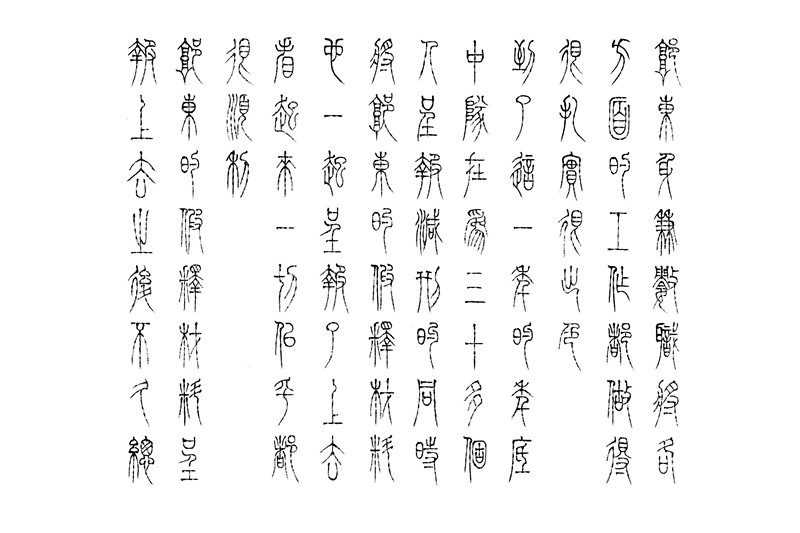 東身兼數職將各
方面的工作都做得
很扎實很出色
到了這一年的年底
中隊在爲二十多個
人呈報減刑的同時
將東的假釋材料
也一起呈報了上去
看起來一切似乎都
很順利
東的假釋材料呈
報上去之後不久總